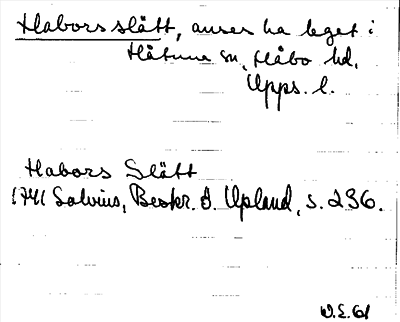 Habors slått, anses ha leget i
Håtuna sn, Håbo hd,
Upps. l.
Habors Slått
1741 Salvius, Beskr. ö. Upland, s. 236.
W.E. 61